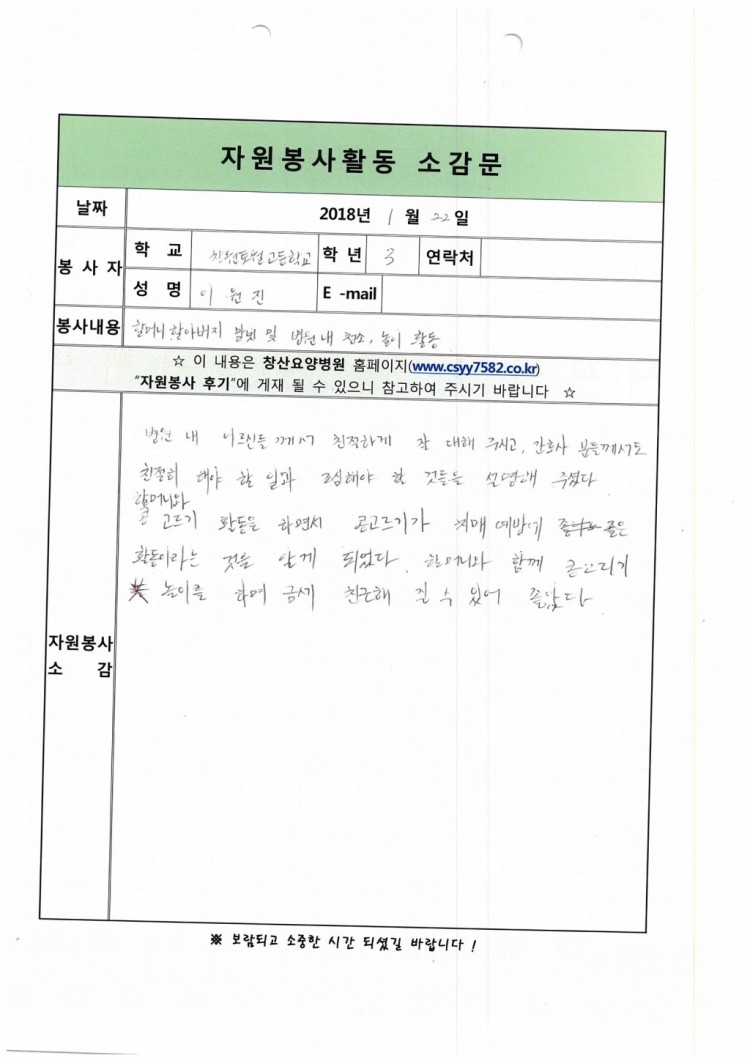 자원봉사활동 소감문
날짜 2018년 1 월 22일
봉 사 자 학 교 창원토월고등학교 학 년 3 연락처
성 명 이원진 E -mail
봉사내용 할머니 할아버지 말벗 및 병원 내 청소, 놀이 활동
☆ 이 내용은 창산요양병원 홈페이지(www.csyy7582.co.kr)
"자원봉사 후기"에 게재 될 수 있으니 참고하여 주시기 바랍니다 ☆
병원 내 어르신들께서 친적하게 잘 대해 주시고, 간호사 분들께서도
친절히 해야 할 일과 조심해야 할 것들을 설명해 주셨다
할머니와
콩 고르기 활동을 하면서 콩고르기가 치매 예방에 좋은
활동이라는 것을 알게 되었다. 할머니와 함께 콩고르기
놀이를 하며 금세 친근해 질 수 있어 좋았다
자원봉사
소 감
※ 보람되고 소중한 시간 되셨길 바랍니다 !